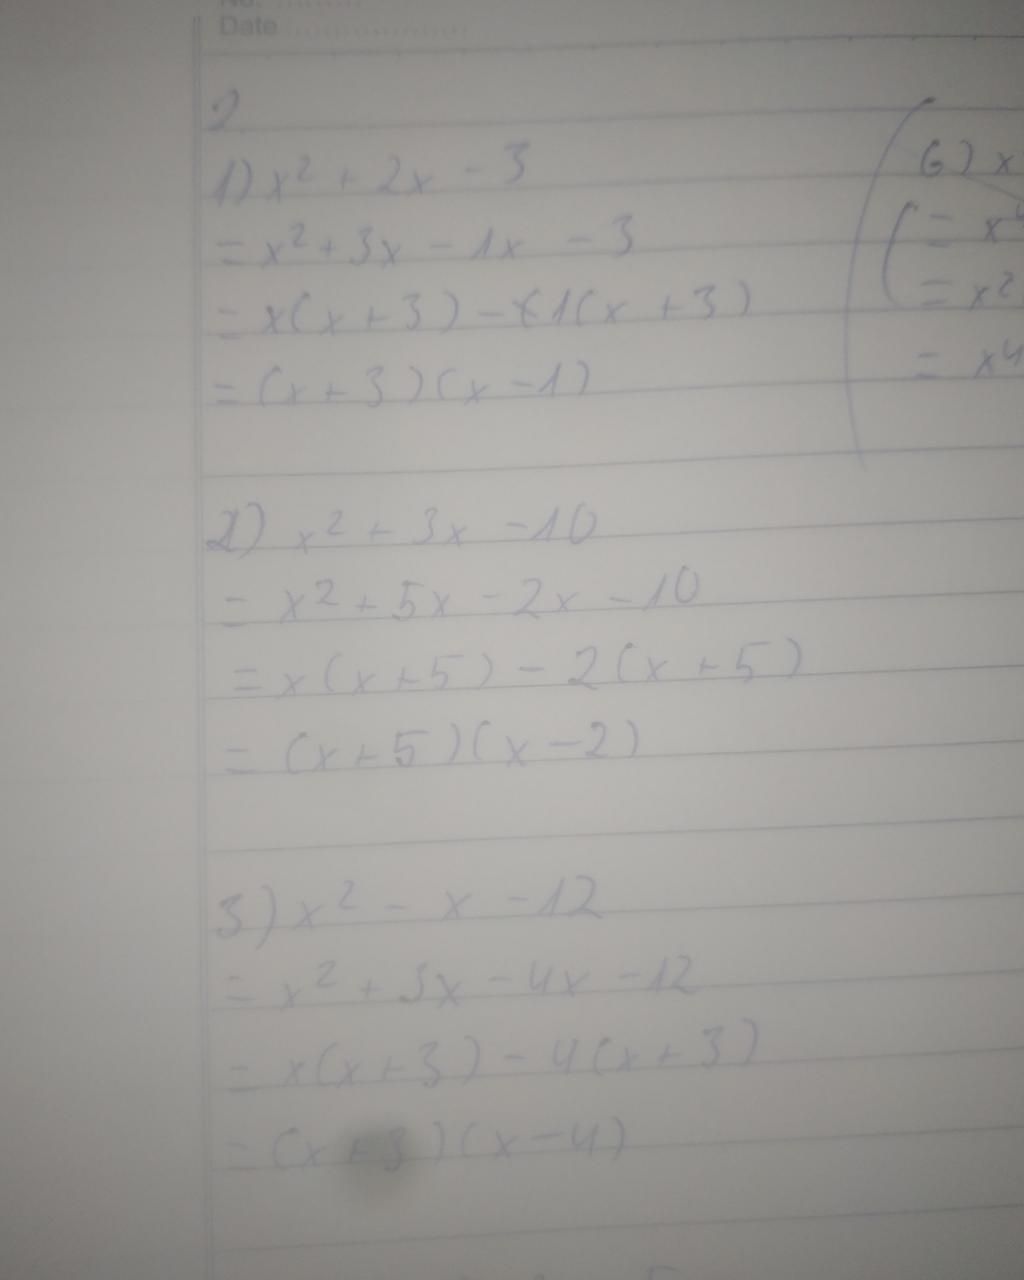 No. ..........
Date ....................
2
1) x² + 2x - 3
= x² + 3x - 1x - 3
= x(x + 3) - 1(x + 3)
= (x + 3)(x - 1)
2) x² + 3x - 10
= x² + 5x - 2x - 10
= x(x + 5) - 2(x + 5)
= (x + 5)(x - 2)
3) x² - x - 12
= x² + 3x - 4x - 12
= x(x + 3) - 4(x + 3)
= (x + 3)(x - 4)
6) x
= x⁴
= x²
= x⁴